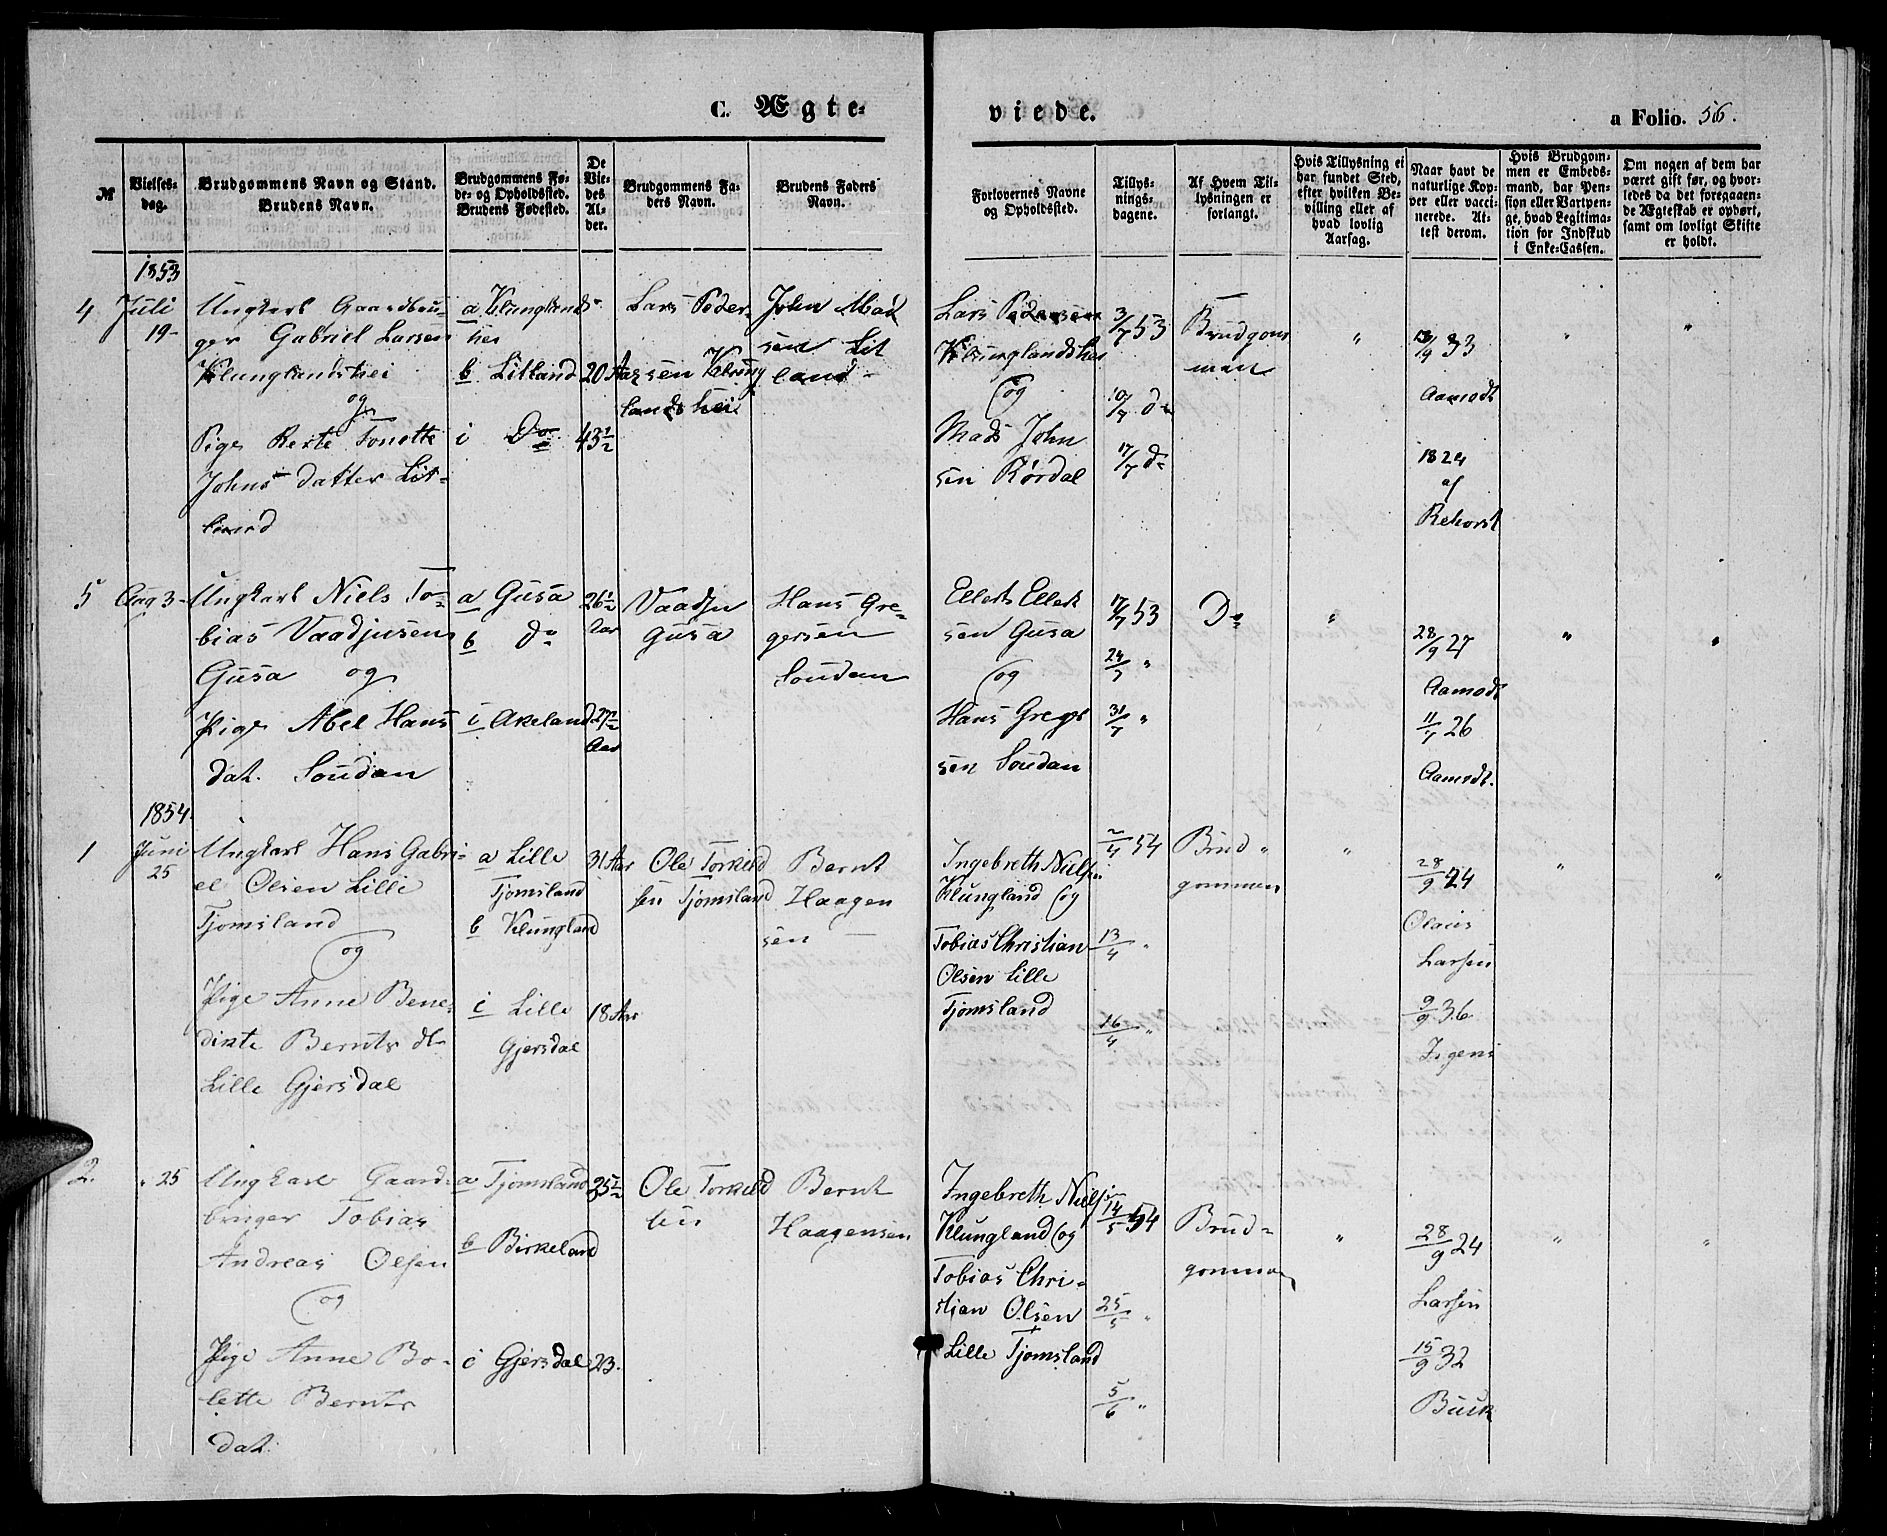 C. Ægte-
viede.
a Folio. 56.
№
Vielses-
dag.
Brudgommens Navn og Stand.
Brudens Navn.
Brudgommens Fø-
de- og Opholdssted.
Brudens Fødested.
De
Vie-
des
Al-
der.
Brudgommens Fa-
ders Navn.
Brudens Faders
Navn.
Forlovernes Navne
og Opholdssted.
Tillys-
nings-
dagene.
Af Hvem Til-
lysningen er
forlangt.
Hvis Tillysning ei
har fundet Sted,
efter hvilken Be-
villing eller af
hvad lovlig
Aarsag.
Naar havt de
naturlige Kop-
per eller vacci-
nerede. At-
test derom.
Hvis Brudgom-
men er Embeds-
mand, har Pen-
sion eller Vartpen-
ge, hvad Legitima-
tion for Indskud
i Enke-Cassen.
Om nogen af dem har
været gift før, og hvor-
ledes da det foregaaen-
de Ægteskab er ophørt,
samt om lovligt Skifte
er holdt.
1853
4
Juli
19-
Ungkarl Gaardbru-
ger Gabriel Larsen
Klunglandshei
og
Pige Tonette
Johns datter Lit-
land
a Klunglands-
hei
b Litland
i Do
20 Aar
43½
Lars Peder-
sen Klung
landshei
John Mad
sen Lit
land
Lars Pedersen
Klunglandshei
og
Mads John
sen Rørdal
3/7 53
10/7 do
17/7 do
Brudgom
men
"
13/9 33
Aamodt
1824
af
Rehorst
"
"
5
Aug 3-
Ungkarl Niels To-
bias Vaadjusen
Gusa og
Pige Abel Hans
dat. Loudan
a Gusa
b do
i Akeland
26½
Aar
27½
Aar
Vaadju
Gusa
Hans Gre-
gersen
Loudan
Ellert Ellert
sen Gusa
og
Hans Greger
sen Loudan
17/7 53
24/7 "
31/7 "
Do
"
28/9 27
Aamodt
11/7 26
Aamodt.
"
"
1854
1
Juni
25
Ungkarl Hans Gabri-
el Olsen Lille
Tjomsland
og
Pige Anne Bene-
dikte Bernts dt
Lille Gjersdal
a Lille
Tjomsland
b Klungland
i Lille
Gjersdal
31 Aar
18 Aar
Ole Torkild
sen Tjomsland
Bernt
Haagen
sen
Ingebreth Nielsen
Klungland og
Tobias Christian
Olsen Lille
Tjomsland
2/4 54
13/4 "
16/4 "
Brud-
gommen
"
28/9 24
Olaus
Larsen
9/9 36
"
"
2.
" 25
Ungkarl Gaard-
bruger Tobias
Andreas Olsen
og
Pige Anne Bo-
lette Bernts
dat.
a Tjomsland
b Birkeland
i Gjersdal
25½
23.
Ole Torkild
sen
Bernt
Haagensen
Ingebreth Nielsen
Klungland og
Tobias Chri-
stian Olsen
Lille Tjomsland
14/5 54
25/5 "
5/6 "
Brud-
gommen
"
28/9 24
Larsen
15/9 32
Buck
"
"